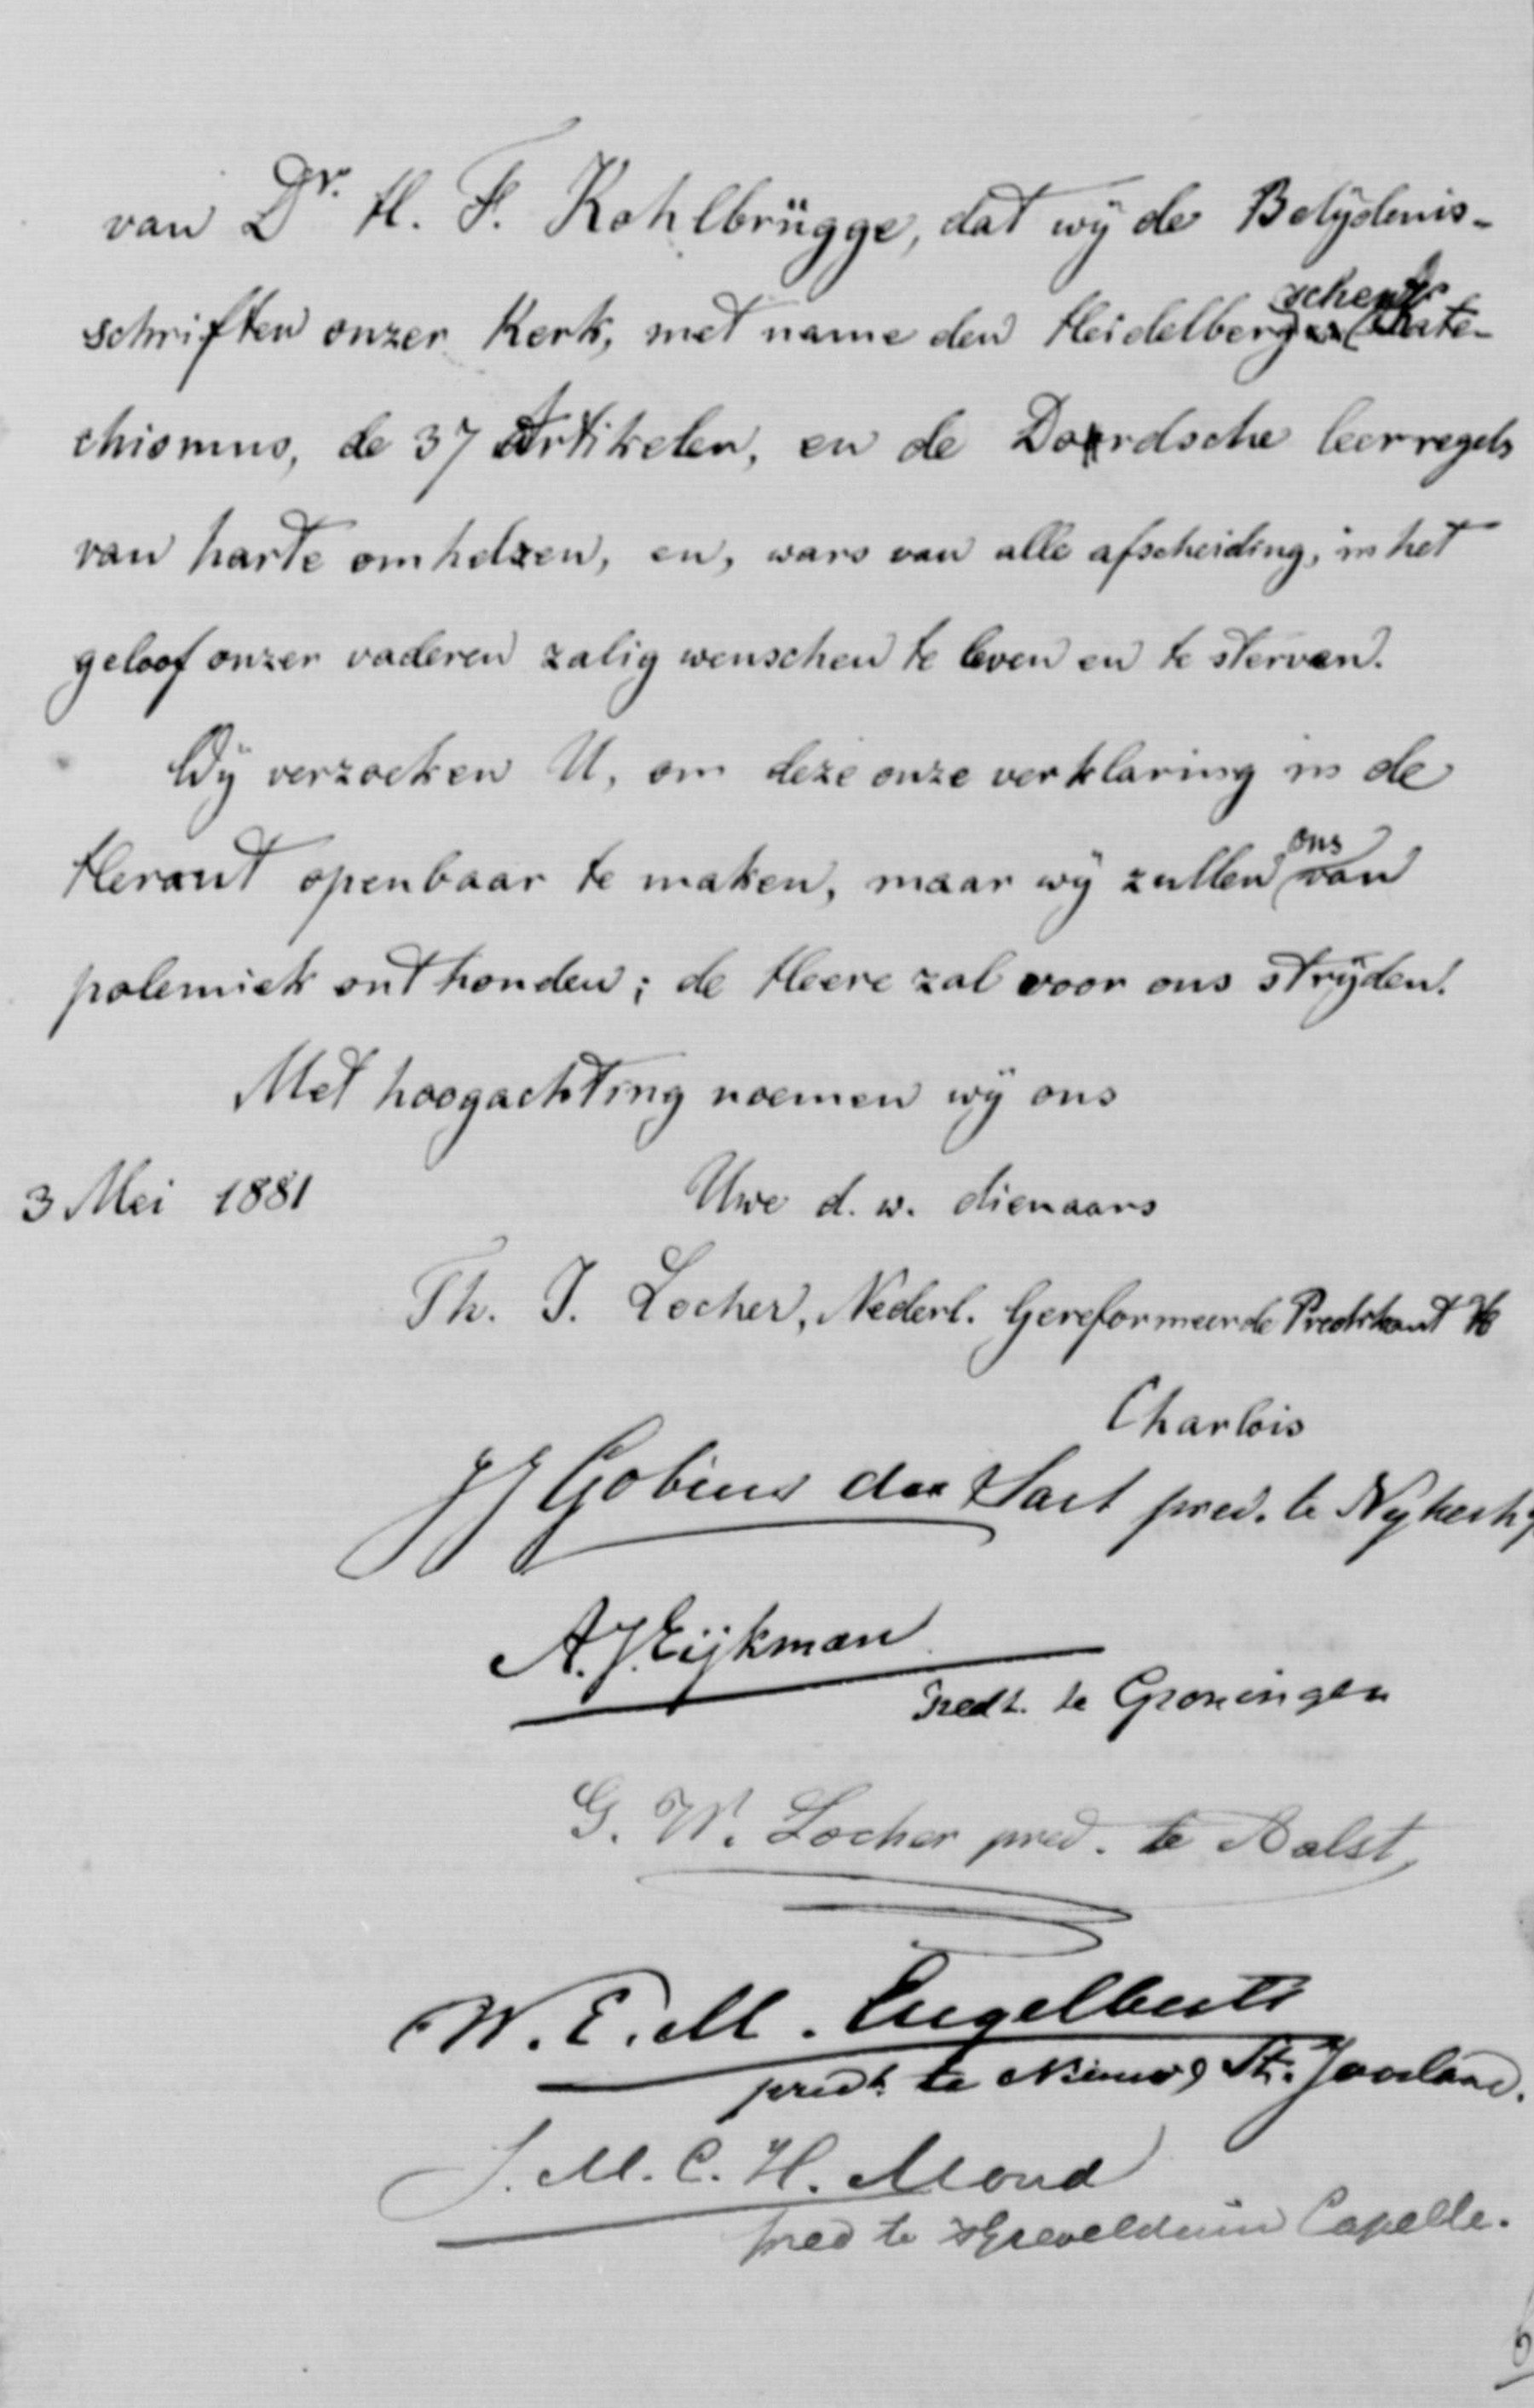 van Dr. H. F. Kohlbrügge, dat wij de Belijdenis-
schriften onzer Kerk, met name den Heidelbergschen Cate-
chismus, de 37 Artikelen, en de Dordsche leerregels
van harte omhelzen, en, wars van alle afscheiding, in het
geloof onzer vaderen zalig wenschen te leven en te sterven.
Wij verzoeken U, om deze onze verklaring in de
Heraut openbaar te maken, maar wij zullen ons van
polemiek onthouden; de Heere zal voor ons strijden!
Met hoogachting noemen wij ons
3 Mei 1881 Uwe d. w. dienaars
Th. J. Locher, Nederl. Gereformeerde Predikant te
Charlois
JJ Gobius du Sart pred. te Nykerk
A. J. Eijkman
Predt. te Groningen
G. W. Locher pred. te Aalst
W. E. M. Engelberts
predt. te Nieuw St. Joosland.
J. M. C. H. Mond
pred te s'Grevelduin Capelle.